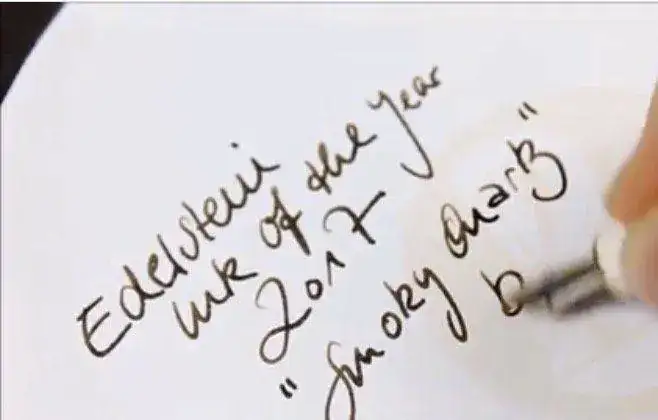 Edelstein
Ink of the Year
2017
"Smoky Quartz"
b